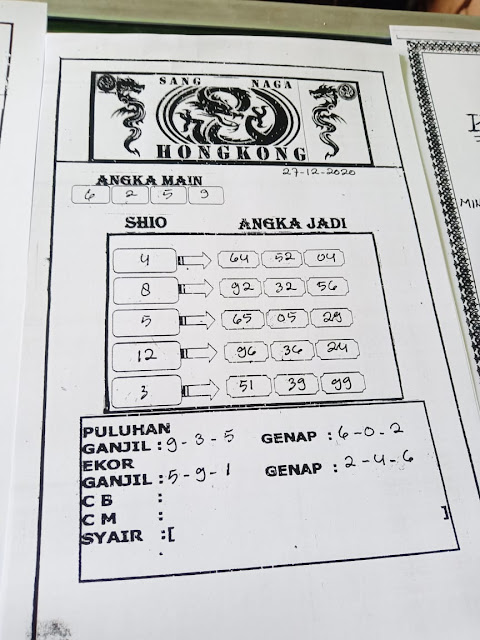 SANG NAGA
HONGKONG
27-12-2020
ANGKA MAIN
6 2 5 9
SHIO ANGKA JADI
4 64 52 04
8 92 32 56
5 65 05 29
12 96 36 24
3 51 39 99
PULUHAN
GANJIL : 9 - 3 - 5 GENAP : 6 - 0 - 2
EKOR
GANJIL : 5 - 9 - 1 GENAP : 2 - 4 - 6
C B :
C M :
SYAIR :[ ]